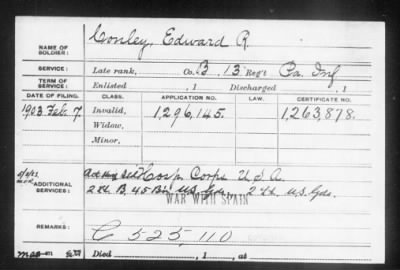 NAME OF SOLDIER: Conley, Edward R.
SERVICE: Late rank, Co. B, 13 Reg't Pa. Inf
TERM OF SERVICE: Enlisted , 1 Discharged , 1
DATE OF FILING. CLASS. APPLICATION NO. LAW. CERTIFICATE NO.
1903 Feb. 7. Invalid, 1,296,145. 1,263,878.
Widow,
Minor,
ADDITIONAL SERVICES: Hosp. Corps U S A
2 Lt. B, 45 Bn U.S. Gds. 2 Lt. U.S. Gds.
WAR WITH SPAIN
REMARKS: C 525,110
Died , 1 , at